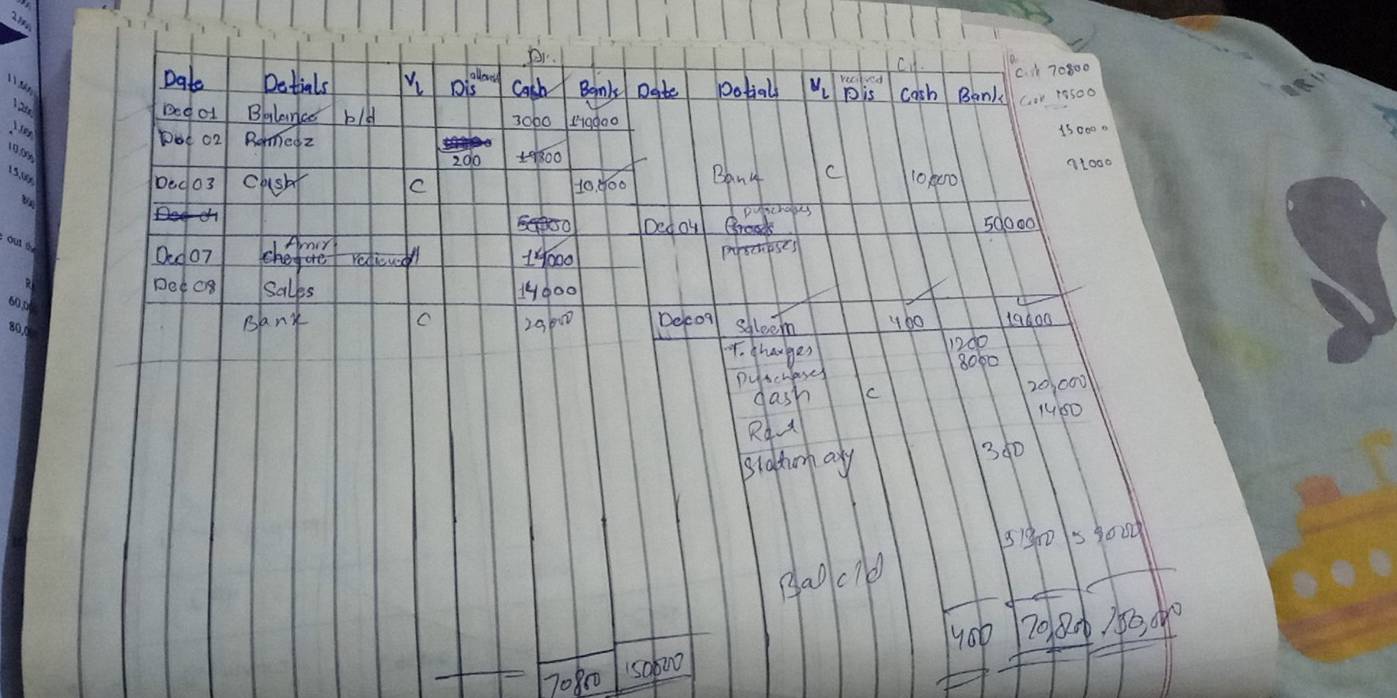 Dr. Cr.
Date Detials VL Dis allowed Cash Bank Date Detials VL Dis recived Cash Bank
Cash 70800
Dec 01 Balance b/d 3000 140000
15000
Dec 02 Rameez 200 19800
91000
Dec 03 Cash C 10,000 Bank C 10,000
Dec 04 50000 Dec 04 Goods purchases 50000
purchases
Dec 07 Amir cheque recieved 14000
Dec 08 Sales 14000
Bank C 20,000 Dec 09 Saleem 400 19600
T. charges 1200
Purchases 8000
Cash C 20,000
Rent 1400
Stationary 300
51300 59000
Bal c/d
400 70,800 150,000
70800 150000